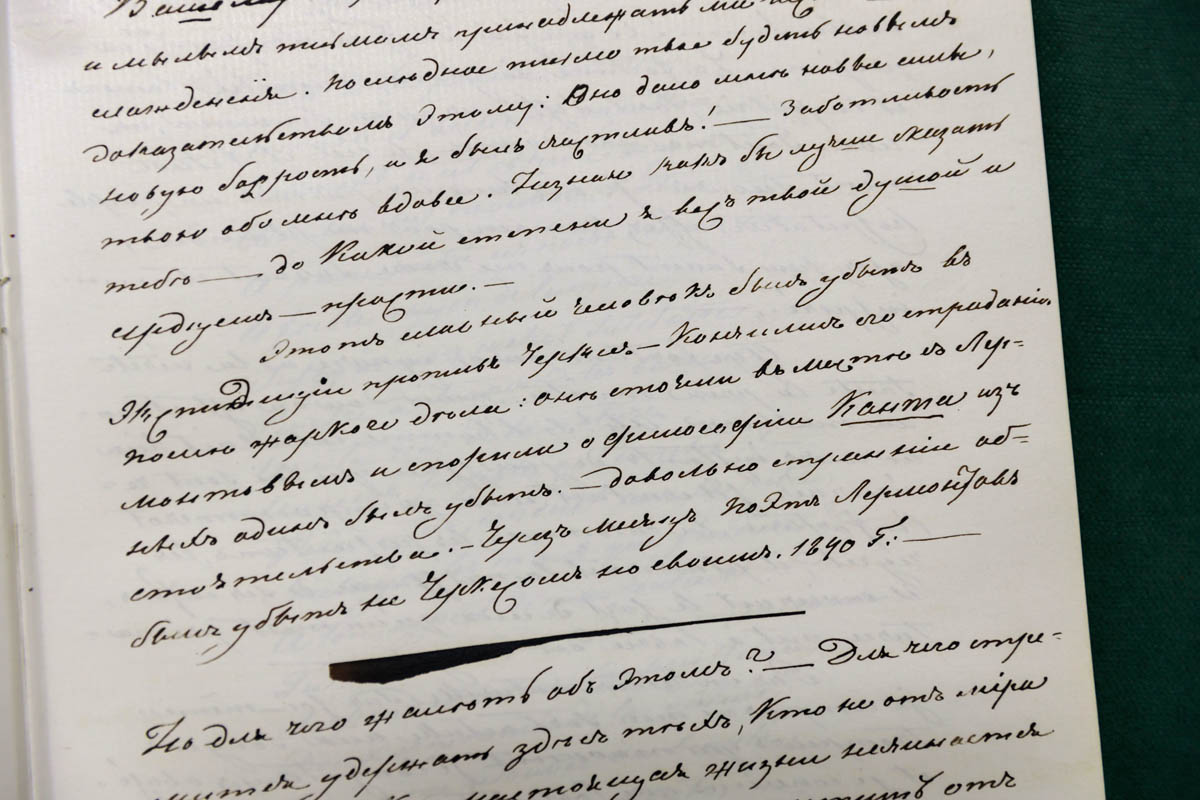 и милымъ письмомъ принадлежатъ мнѣ
слажденія. Последнее письмо твое будетъ новымъ
доказательствомъ этому: Оно дало мнѣ новые силы,
новую бодрость, и я былъ счастливъ! — Заботливость
твою обо мнѣ вдвое. Незнаю какъ бы лучше сказать
тебѣ — до какой степени я весь твой душой и
сердцемъ — прости. —
Этотъ славный человѣкъ былъ убытъ въ
Экспидиціи противъ Черкес. — Кончились его страданія
послѣ жаркого дѣла: онѣ стояли въ мѣстѣ съ Лер-
монтовымъ и спорили о философіи Канта изъ
нихъ одинъ былъ убытъ. — довольно странніи об=
стоятельства. — Черезъ месяцъ поэтъ Лермонтовъ
былъ убытъ не Черкесомъ но своимъ. 1840 Г: —
Но для чего жалѣть объ этомъ? — Для чего стре-
мится удержать здѣсь тѣхъ, Кто не отъ міра
настоящая жизни начинается
отъ